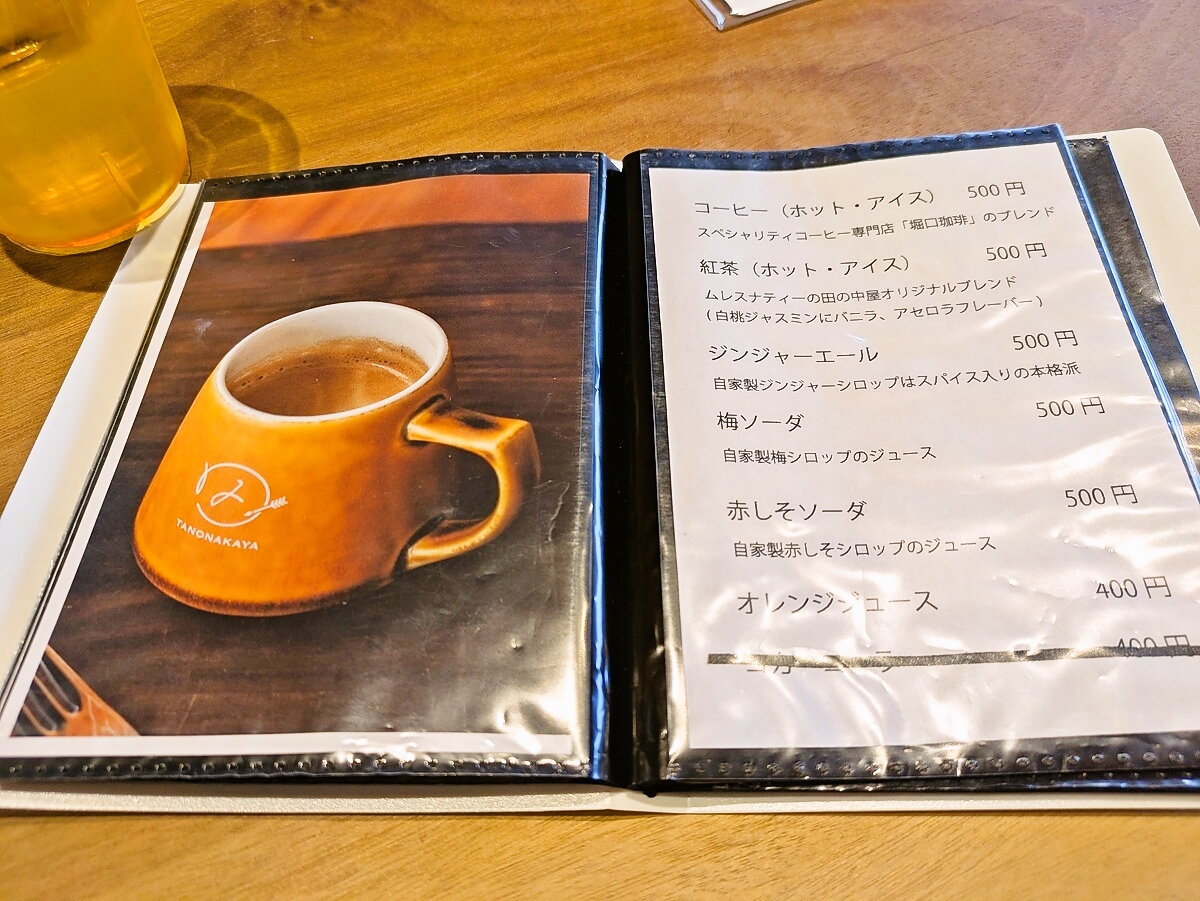 TANONAKAYA
コーヒー（ホット・アイス） 500 円
スペシャリティコーヒー専門店「堀口珈琲」のブレンド
紅茶（ホット・アイス） 500 円
ムレスナティーの田の中屋オリジナルブレンド
(白桃ジャスミンにバニラ、アセロラフレーバー)
ジンジャーエール 500 円
自家製ジンジャーシロップはスパイス入りの本格派
梅ソーダ 500 円
自家製梅シロップのジュース
赤しそソーダ 500 円
自家製赤しそシロップのジュース
オレンジジュース 400 円
400 円